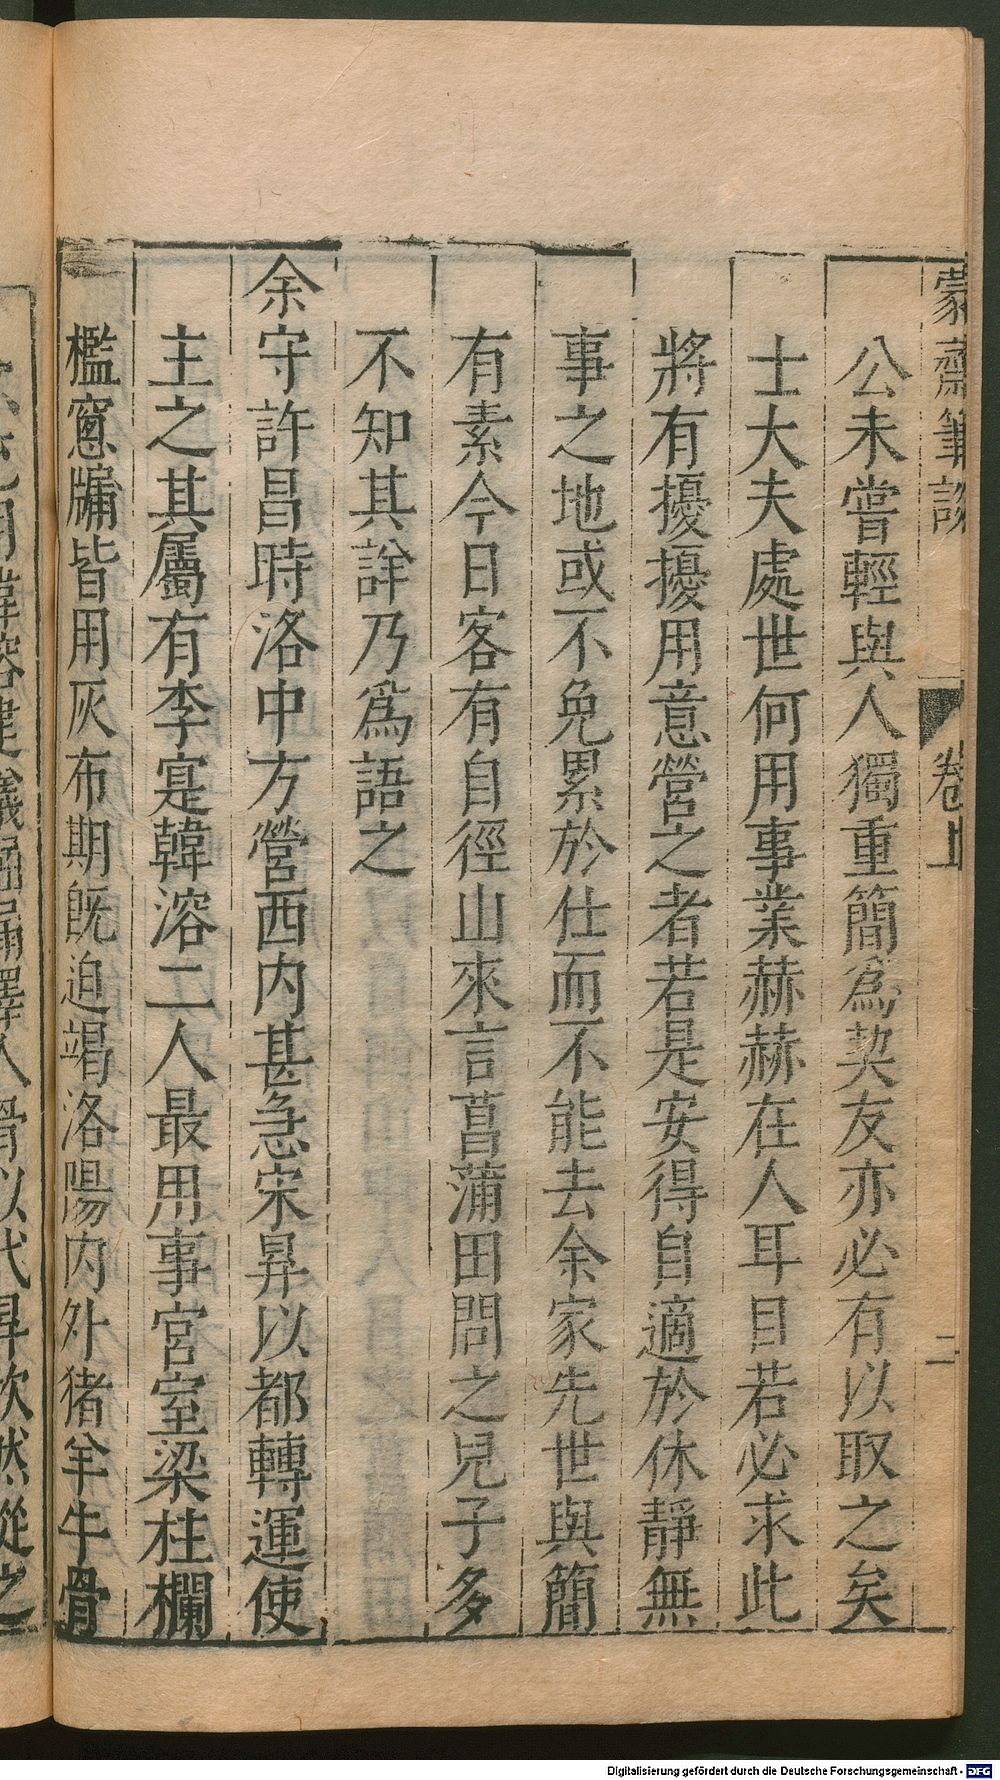 蒙齋筆談
卷上
二
公未嘗輕與人獨重簡爲契友亦必有以取之矣
士大夫處世何用事業赫赫在人耳目若必求此
將有擾擾用意營之者若是安得自適於休靜無
事之地或不免累於仕而不能去余家先世與簡
有素今日客有自徑山來言菖蒲田問之兒子多
不知其詳乃爲語之
余守許昌時洛中方營西内甚急宋昇以都轉運使
主之其屬有李寔韓溶二人最用事宮室梁柱欄
檻窻牖皆用灰布期旣迫竭洛陽内外猪羊牛骨
Digitalisierung gefördert durch die Deutsche Forschungsgemeinschaft - DFG